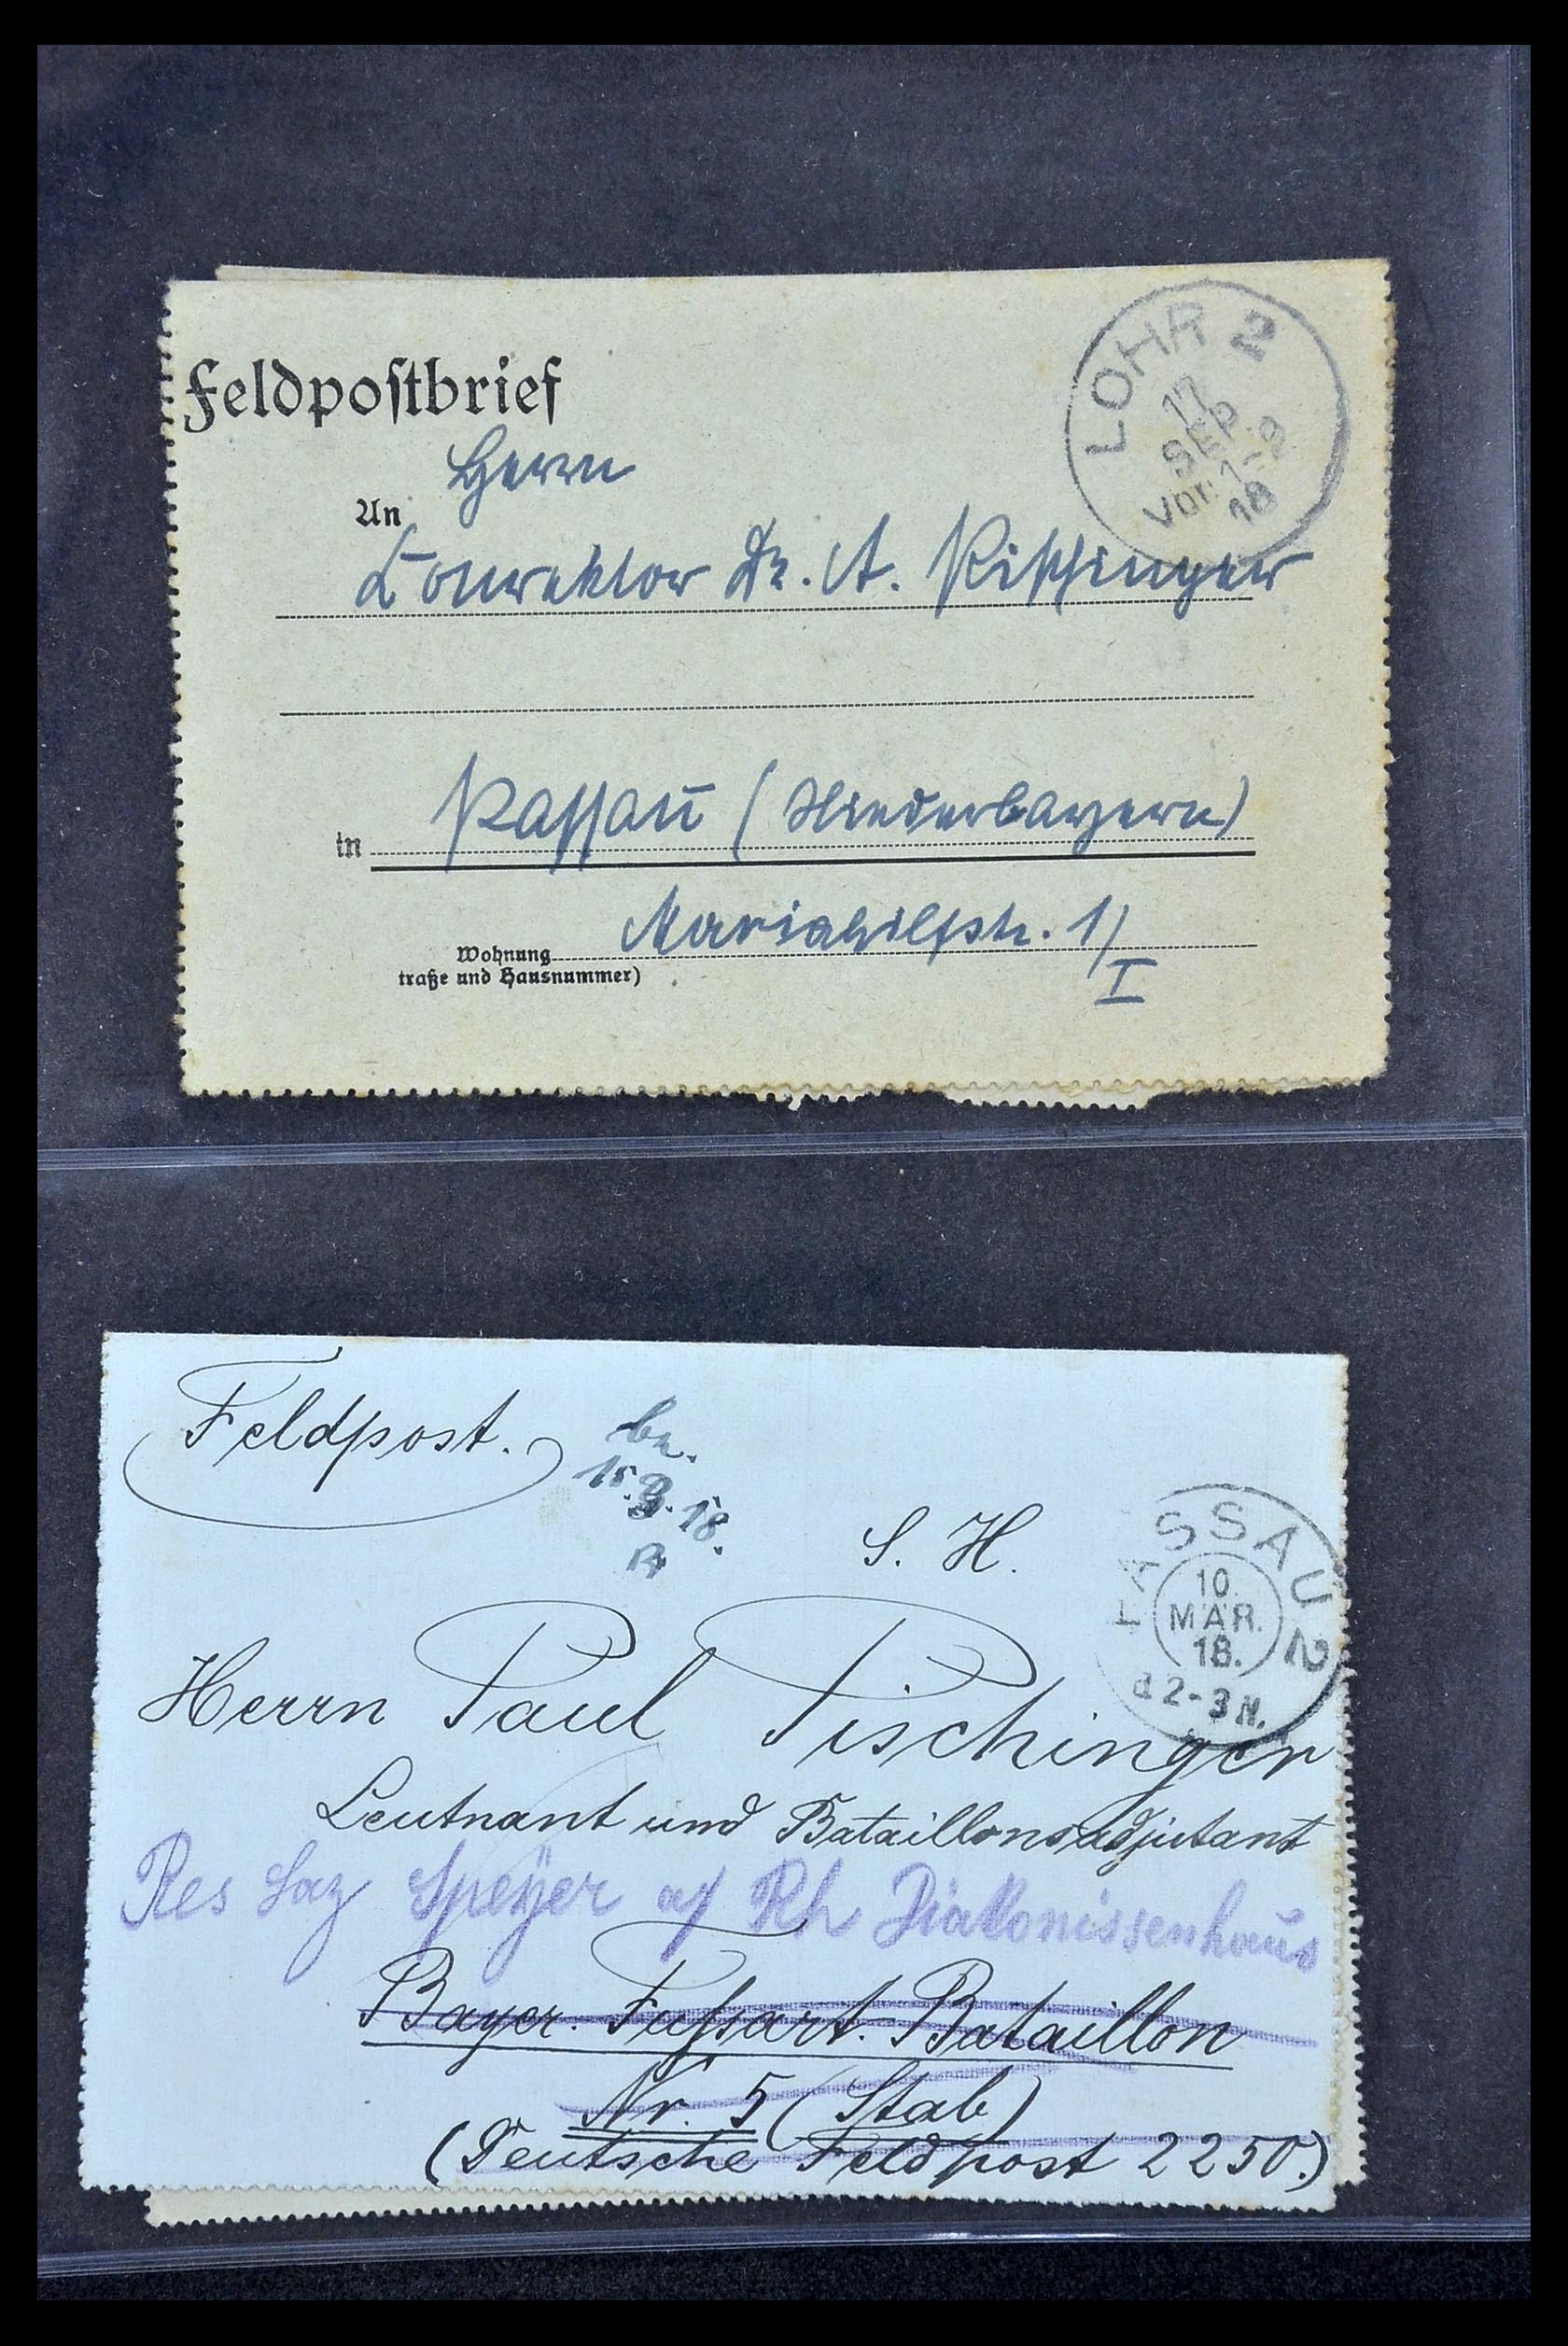 Feldpostbrief
LOHR 2
17
SEP.
Vor. 1-9
18
Herrn
An
Konrektor Dr. A. Pischinger
in Passau (Niederbayern)
Wohnung Mariahilfstr. 1/I
traße und Hausnummer)
Feldpost.
be.
15.3.18.
S. H.
PASSAU 2
10.
MÄR.
18.
2-3 N.
Herrn Paul Pischinger
Leutnant und Bataillonsadjutant
Res Laz Speyer a/ Rh Diakonissenhaus
Bayer. Fußart. Bataillon
Nr. 5 (Stab)
(Deutsche Feldpost 2250.)